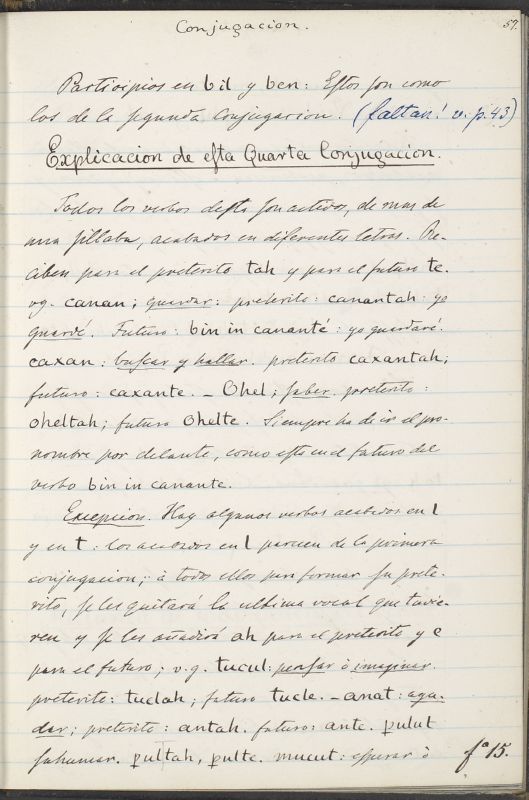 Conjugacion.
57.
Participios en bil y ben: Estos son como
los de la segunda Conjugacion. (faltan! v. p. 43)
Explicacion de esta Quarta Conjugacion.
Todos los verbos desta son activos, de mas de
una sillaba, acabados en diferentes letras. Re-
ciben para el preterito tah y para el futuro te.
vg. canan; guardar: preterito: canantah: yo
guardé. Futuro: bin in cananté: yo guardaré.
caxan: buscar y hallar. preterito caxantah;
futuro: caxante. – Ohel; saber. preterito:
oheltah; futuro Ohelte. Siempre ha de ir el pro-
nombre por delante, como esta en el futuro del
verbo bin in canante.
Excepcion. Hay algunos verbos acabados en l
y en t: los acabados en l parecen de la primera
conjugacion; à todos ellos para formar su prete-
rito, se les quitará la ultima vocal que tuvie-
ren y se les añadirá ah para el preterito y e
para el futuro; v.g. tucul: pensar ò imaginar.
preterito: tuclah; futuro tucle. – anat: ayu-
dar; preterito: antah. futuro: ante. pulut
sahumar. pultah, pulte. mucut: esperar ò
fº 15.